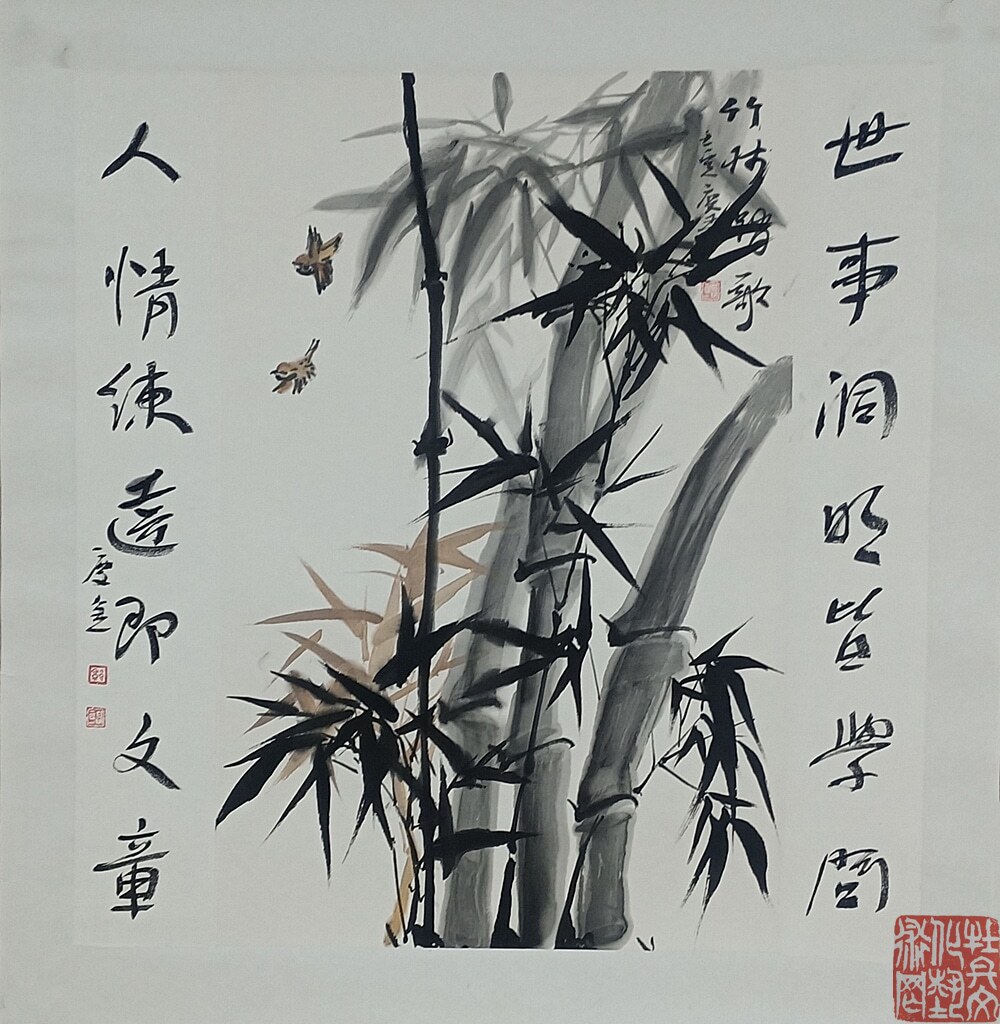 世事洞明皆學問
人情練達即文章
竹林 歌
壬寅